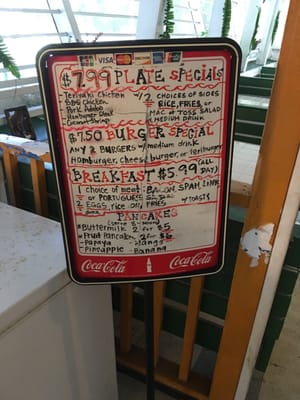 VISA
$7.99 PLATE SPECIALS
- Teriyaki Chicken w/ 2 CHOICES OF SIDES
- BBQ Chicken RICE, FRIES, or
- Pork Adobo MAC + TOSS SALAD
- Hamburger Steak
- Coconut Shrimp
$7.50 BURGER SPECIAL
ANY 2 BURGERS w/ medium drink
Hamburger, cheese burger, or teriburger
BREAKFAST $5.99 (ALL DAY)
1 choice of meat: BACON, SPAM, LINK
or PORTUGUESE SAUSAGE
2 EGGS, rice or FRIES w/ TOASTS
PANCAKES
*Buttermilk 2 for $5
*Fruit Pancakes 2 for $6
- Papaya - Mango
- Pineapple - Banana
Coca-Cola Coca-Cola